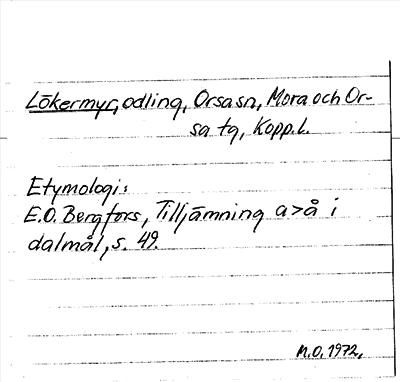 Lökermyr, odling, Orsa sn, Mora och Or-
sa tg, Kopp. l.
Etymologi:
E.O. Bergfors, Tilljämning a>å i
dalmål, s. 49.
M.O. 1972.